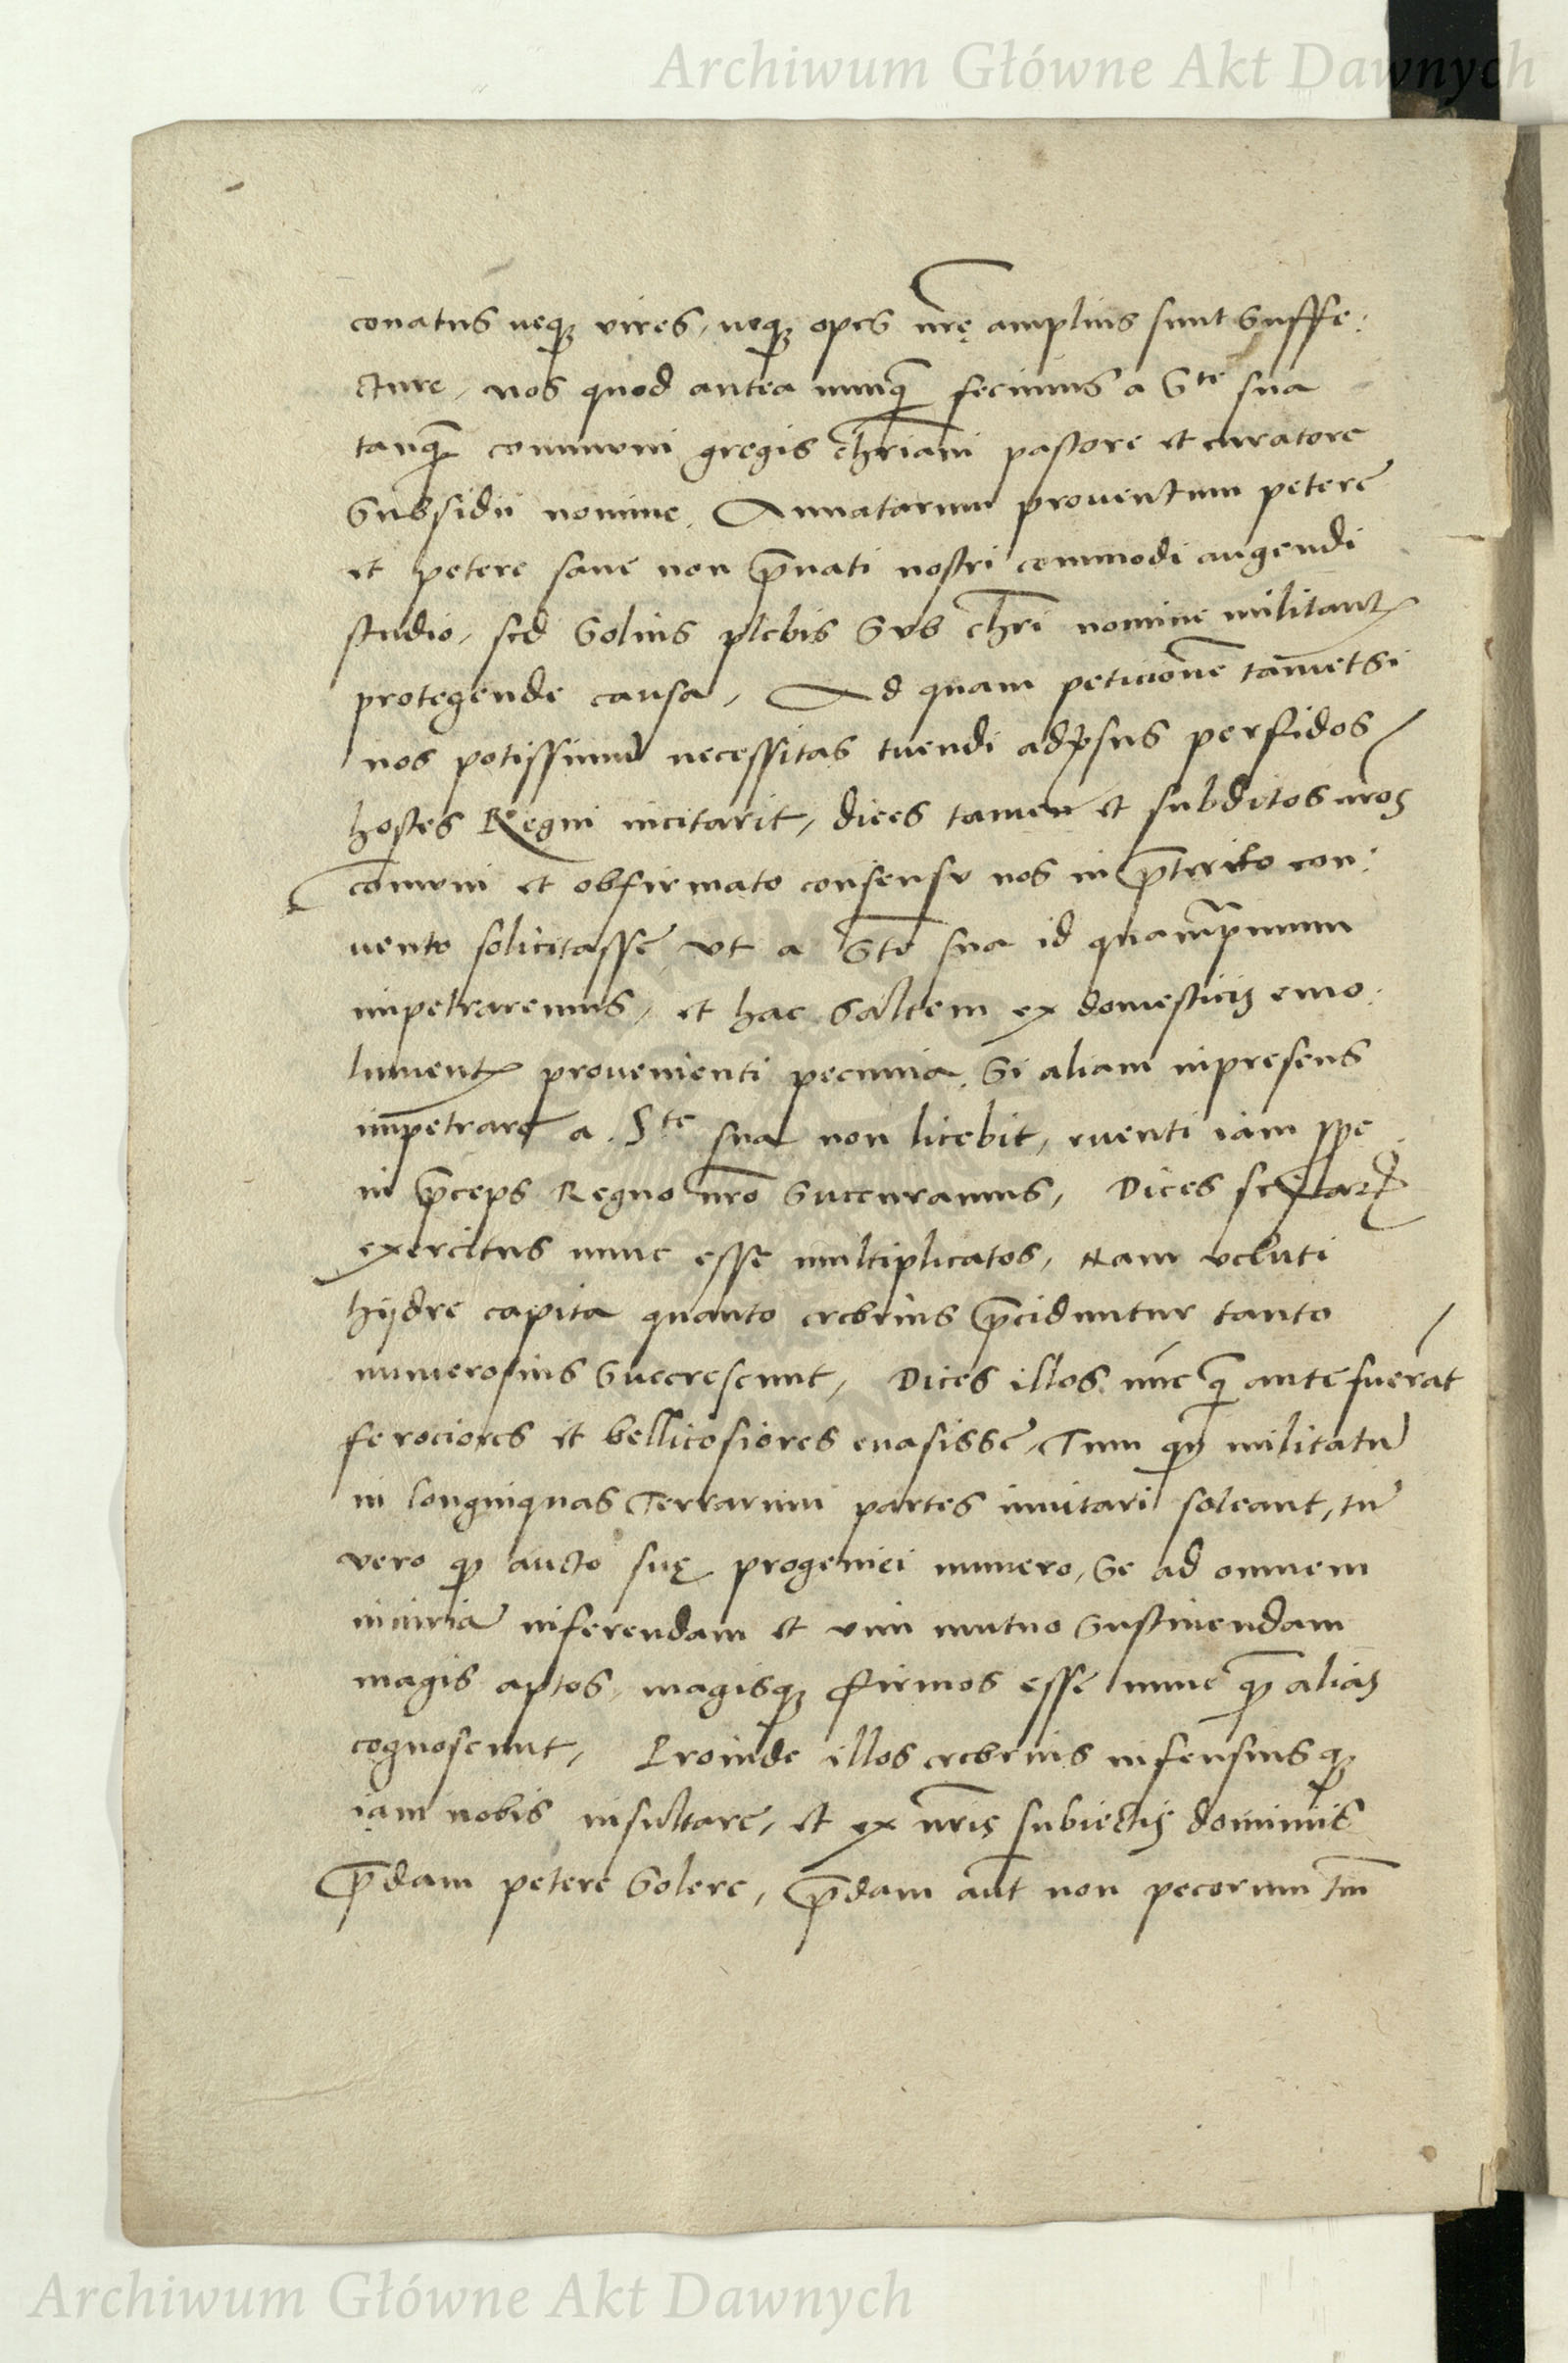 Archiwum Główne Akt Dawnych
conatus neqꝫ vires, neqꝫ opes nr̄ę amplius sunt suffe:
cture, nos quod antea nunq̄ fecimus a Sᵗᵉ sua
tanq̄ communi gregis chr̄iani pastore et curatore
subsidii nomine, Annatarum prouentum petere
et petere sane non p̄uati nostri commodi augendi
studio, sed solius plebis sub chr̄i nomine militantꝭ
protegende causa, Ad quam peticionē tametsi
nos potissimū necessitas tuendi aduꝰsus perfidos
hostes Regni incitarit, dices tamen et subditos nr̄os
cōmuni et obfirmato consensu nos in p̄terito con:
uento solicitasse, vt a Stē sua id quamp̄mum
impetraremus, et hac saltem ex domesticis emo:
lumentꝭ prouenienti pecunia, si aliam inpresens
imp̄etrare a Sᵗᵉ sua non licebit, ruenti iam ꝓpe
in p̄ceps Regno nr̄o succuramus, Dices
exercitus nunc esse multiplicatos, Nam veluti
hydre capita quanto crebrius p̄ciduntur tanto
numerosius succrescunt, Dices illos nūc q̄ ante fuerāt
ferociores et bellicosiores euasisse, Tum qꝫ militatū
in longinquas Terrarum partes inuitari soleant, tū
vero qꝫ aucto suę progeniei numero, se ad omnem
iniuriā inferendam et vim mutuo sustinendam
magis aptos, magisqꝫ firmos esse nunc q̄ alias
cognoscunt, Proinde illos crebrius infensiusqꝫ
iam nobis insultare, et ex nr̄is subiectis dominiis
p̄dam petere solere, p̄dam aūt non pecorum tm̄
Archiwum Główne Akt Dawnych